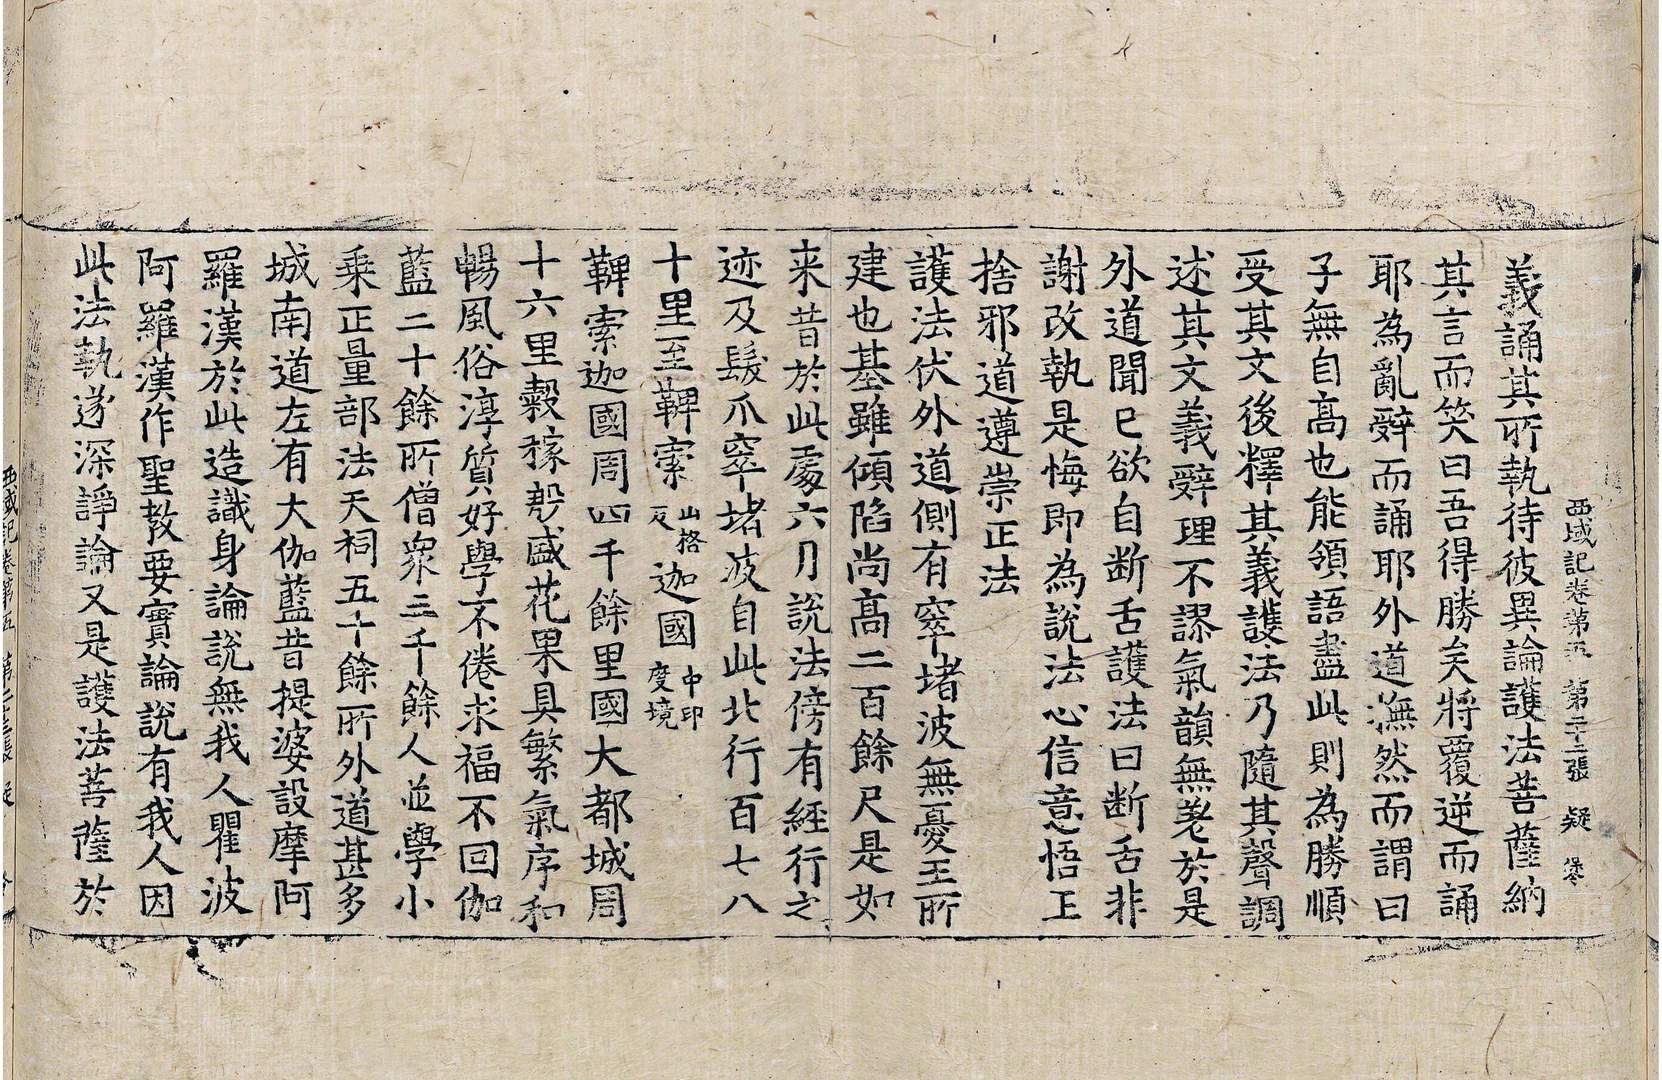 西域記卷第五 第二十二張 疑
義誦其所執待彼異論護法菩薩納
其言而笑曰吾得勝矣將覆逆而誦
耶為亂辤而誦耶外道憮然而謂曰
子無自髙也能領語盡此則為勝順
受其文後釋其義護法乃隨其聲調
述其文義辤理不謬氣韻無差於是
外道聞已欲自断舌護法曰断舌非
謝改執是悔即為説法心信意悟王
捨邪道遵崇正法
護法伏外道側有窣堵波無憂王所
建也基雖傾陷尚髙二百餘尺是如
来昔於此處六月説法傍有經行之
迹及髮爪窣堵波自此北行百七八
十里至鞞索山格反迦國中印度境
鞞索迦國周四千餘里國大都城周
十六里糓稼慇盛花果具繁氣序和
暢風俗淳質好學不倦求福不回伽
藍二十餘所僧衆三千餘人並學小
乗正量部法天祠五十餘所外道甚多
城南道左有大伽藍昔提婆設摩阿
羅漢於此造識身論説無我人瞿波
阿羅漢作聖教要實論説有我人因
此法執遂深諍論又是護法菩薩於
西域記卷第五